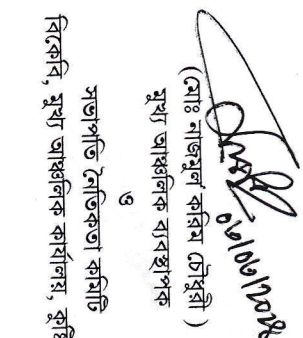 (মোঃ নাজমুল করিম চৌধুরী)
মুখ্য আঞ্চলিক ব্যবস্থাপক
ও
সভাপতি নৈতিকতা কমিটি
বিকেবি, মুখ্য আঞ্চলিক কার্যালয়,